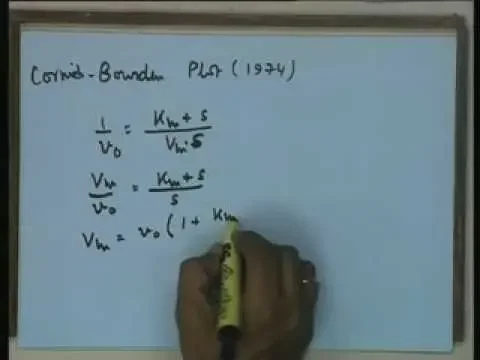 Cornis-Bowden Plot (1974)
1/v₀ = (Km + s)/(Vm·s)
Vm/v₀ = (Km + s)/s
Vm = v₀ (1 + Km